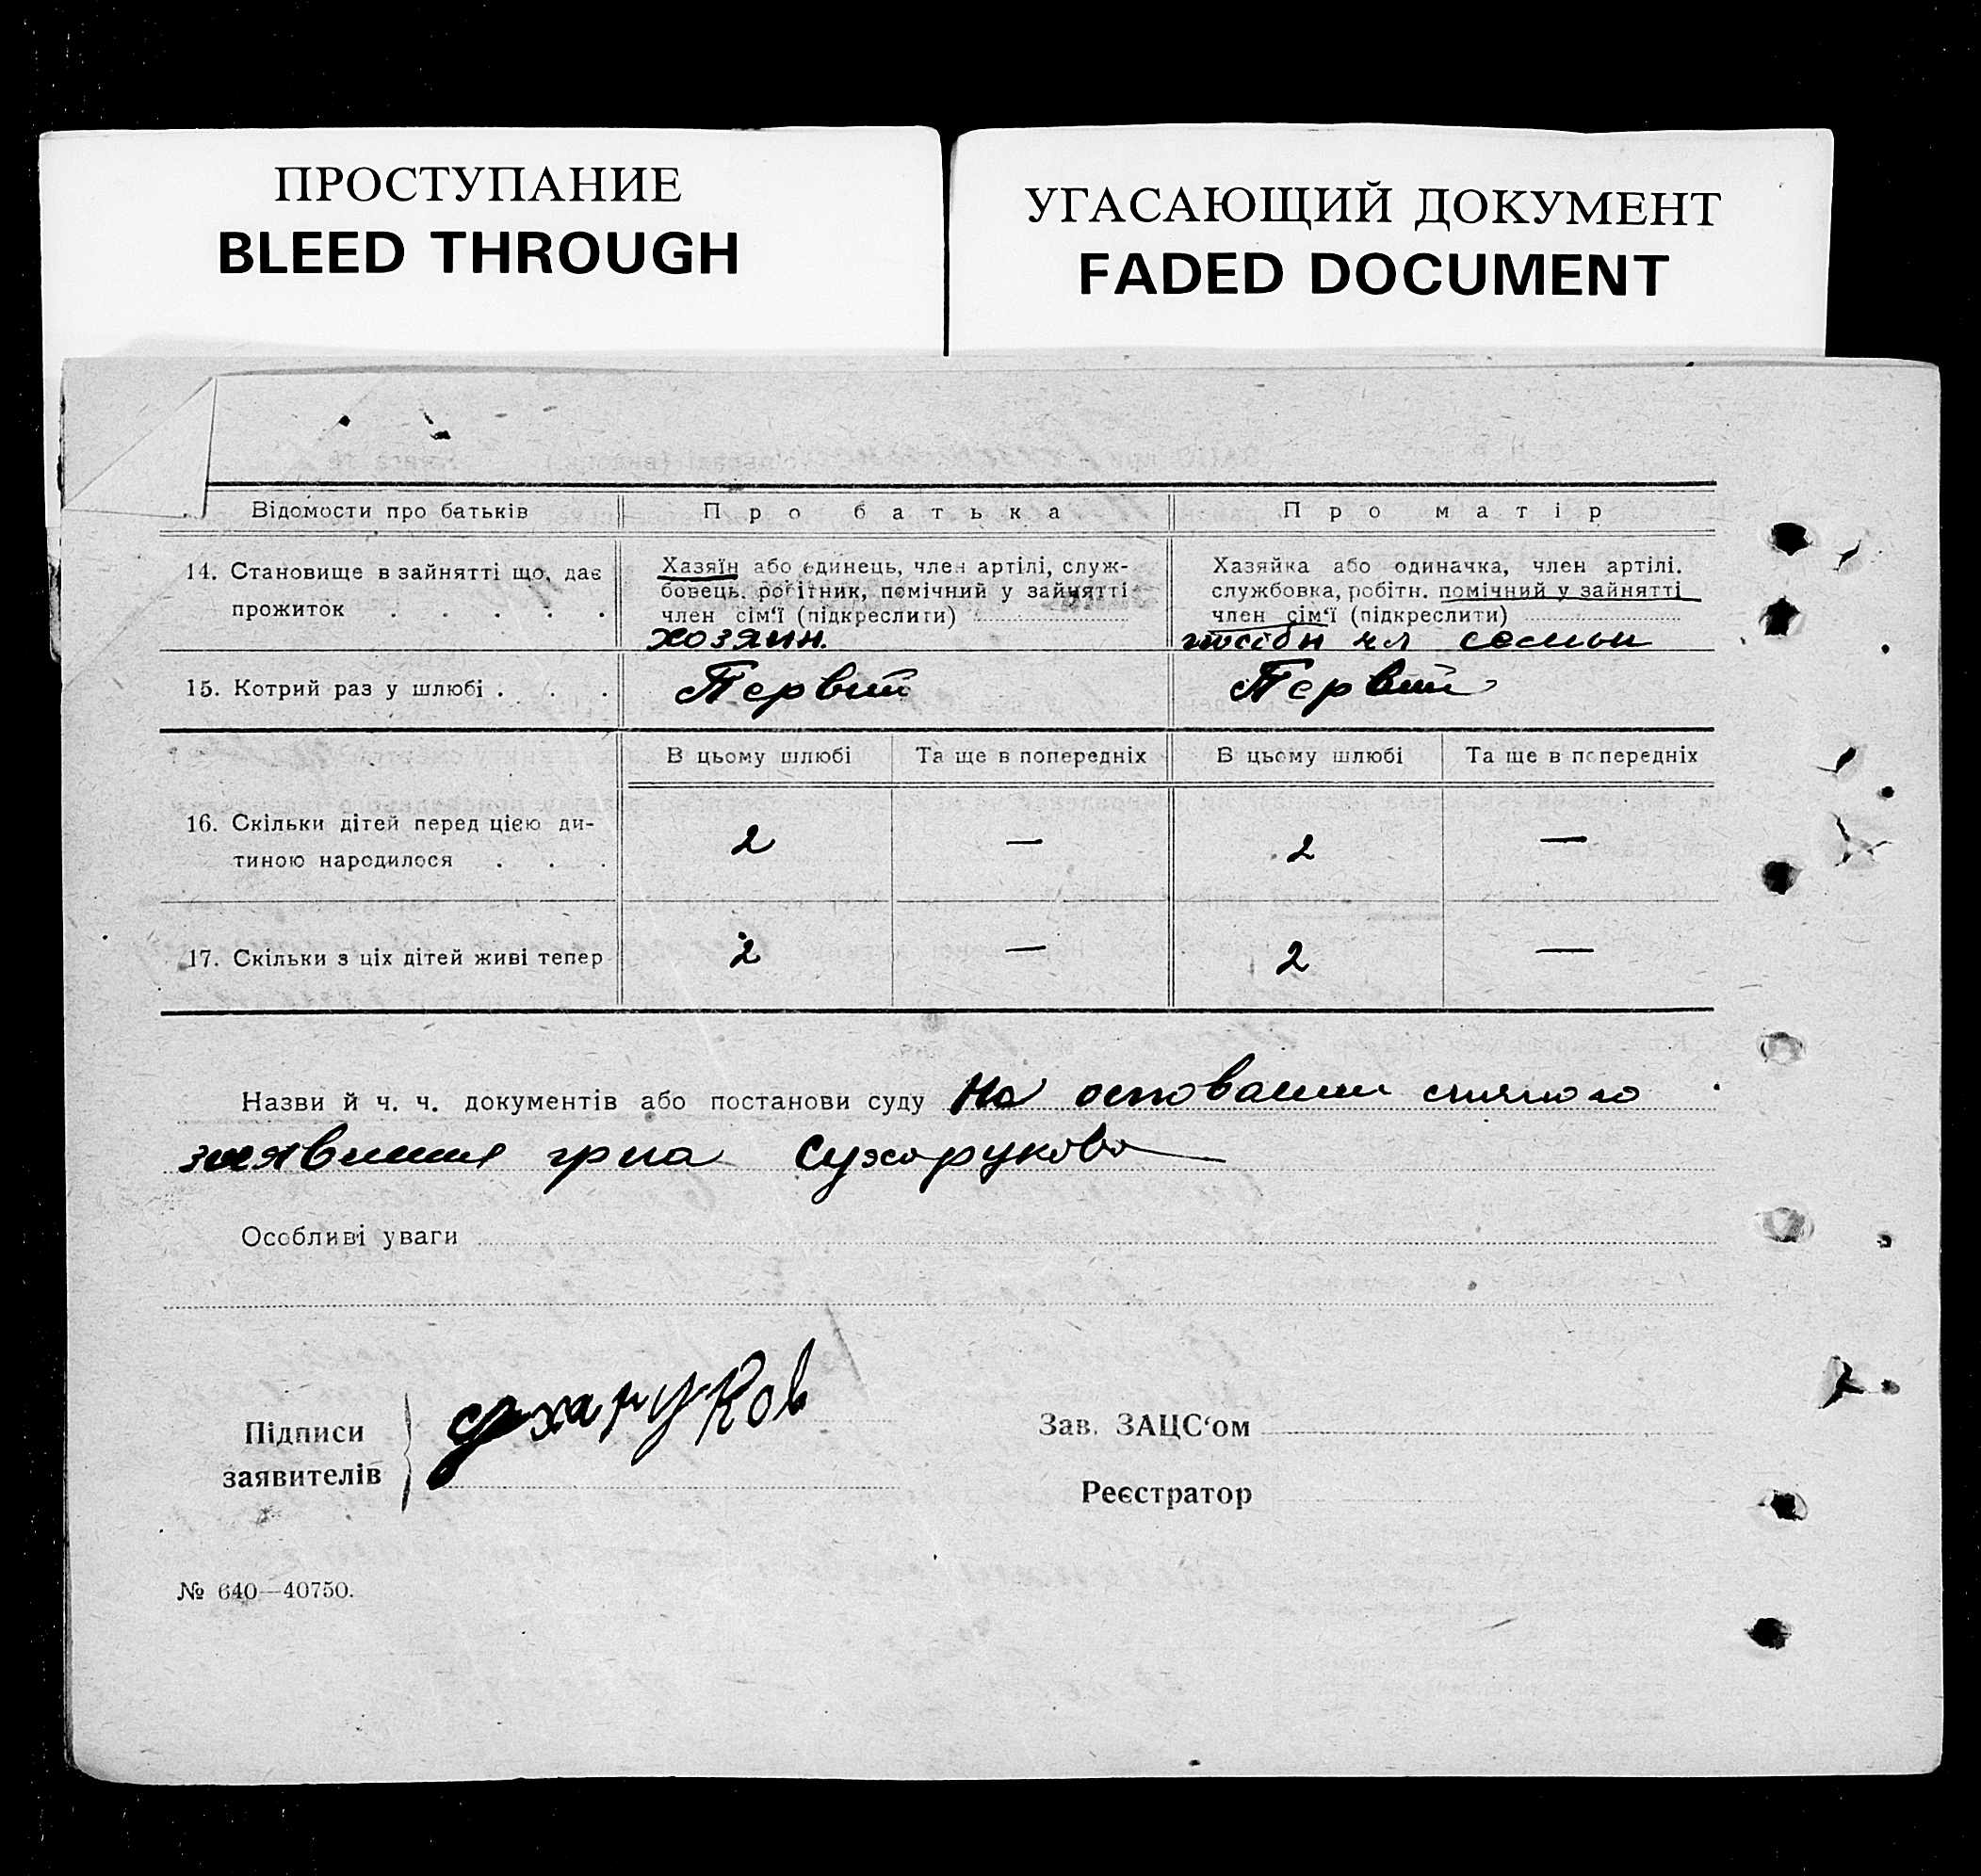 ПРОСТУПАНИЕ
BLEED THROUGH
УГАСАЮЩИЙ ДОКУМЕНТ
FADED DOCUMENT
Відомости про батьків Про батька Про матір
14. Становище в зайнятті що, дає
прожиток . . . .
Хазяїн або одинець, член артілі, служ-
бовець. робітник, помічний у зайнятті
член сім‘ї (підкреслити)
хозяин.
Хазяйка або одиначка, член артілі.
службовка, робітн. помічний у зайнятті
член сім‘ї (підкреслити)
чл семьи
15. Котрий раз у шлюбі . . . Первый Первый
В цьому шлюбі Та ще в попередніх В цьому шлюбі Та ще в попередніх
16. Скільки дітей перед цією ди-
тиною народилося . . . 2 — 2 —
17. Скільки з ціх дітей живі тепер 2 — 2 —
Назви й ч. ч. документів або постанови суду На основании
заявления гр-на Сухорукова
Особливі уваги
Підписи
заявителів
Сухаруков
Зав. ЗАЦС‘ом
Реєстратор
№ 640—40750.